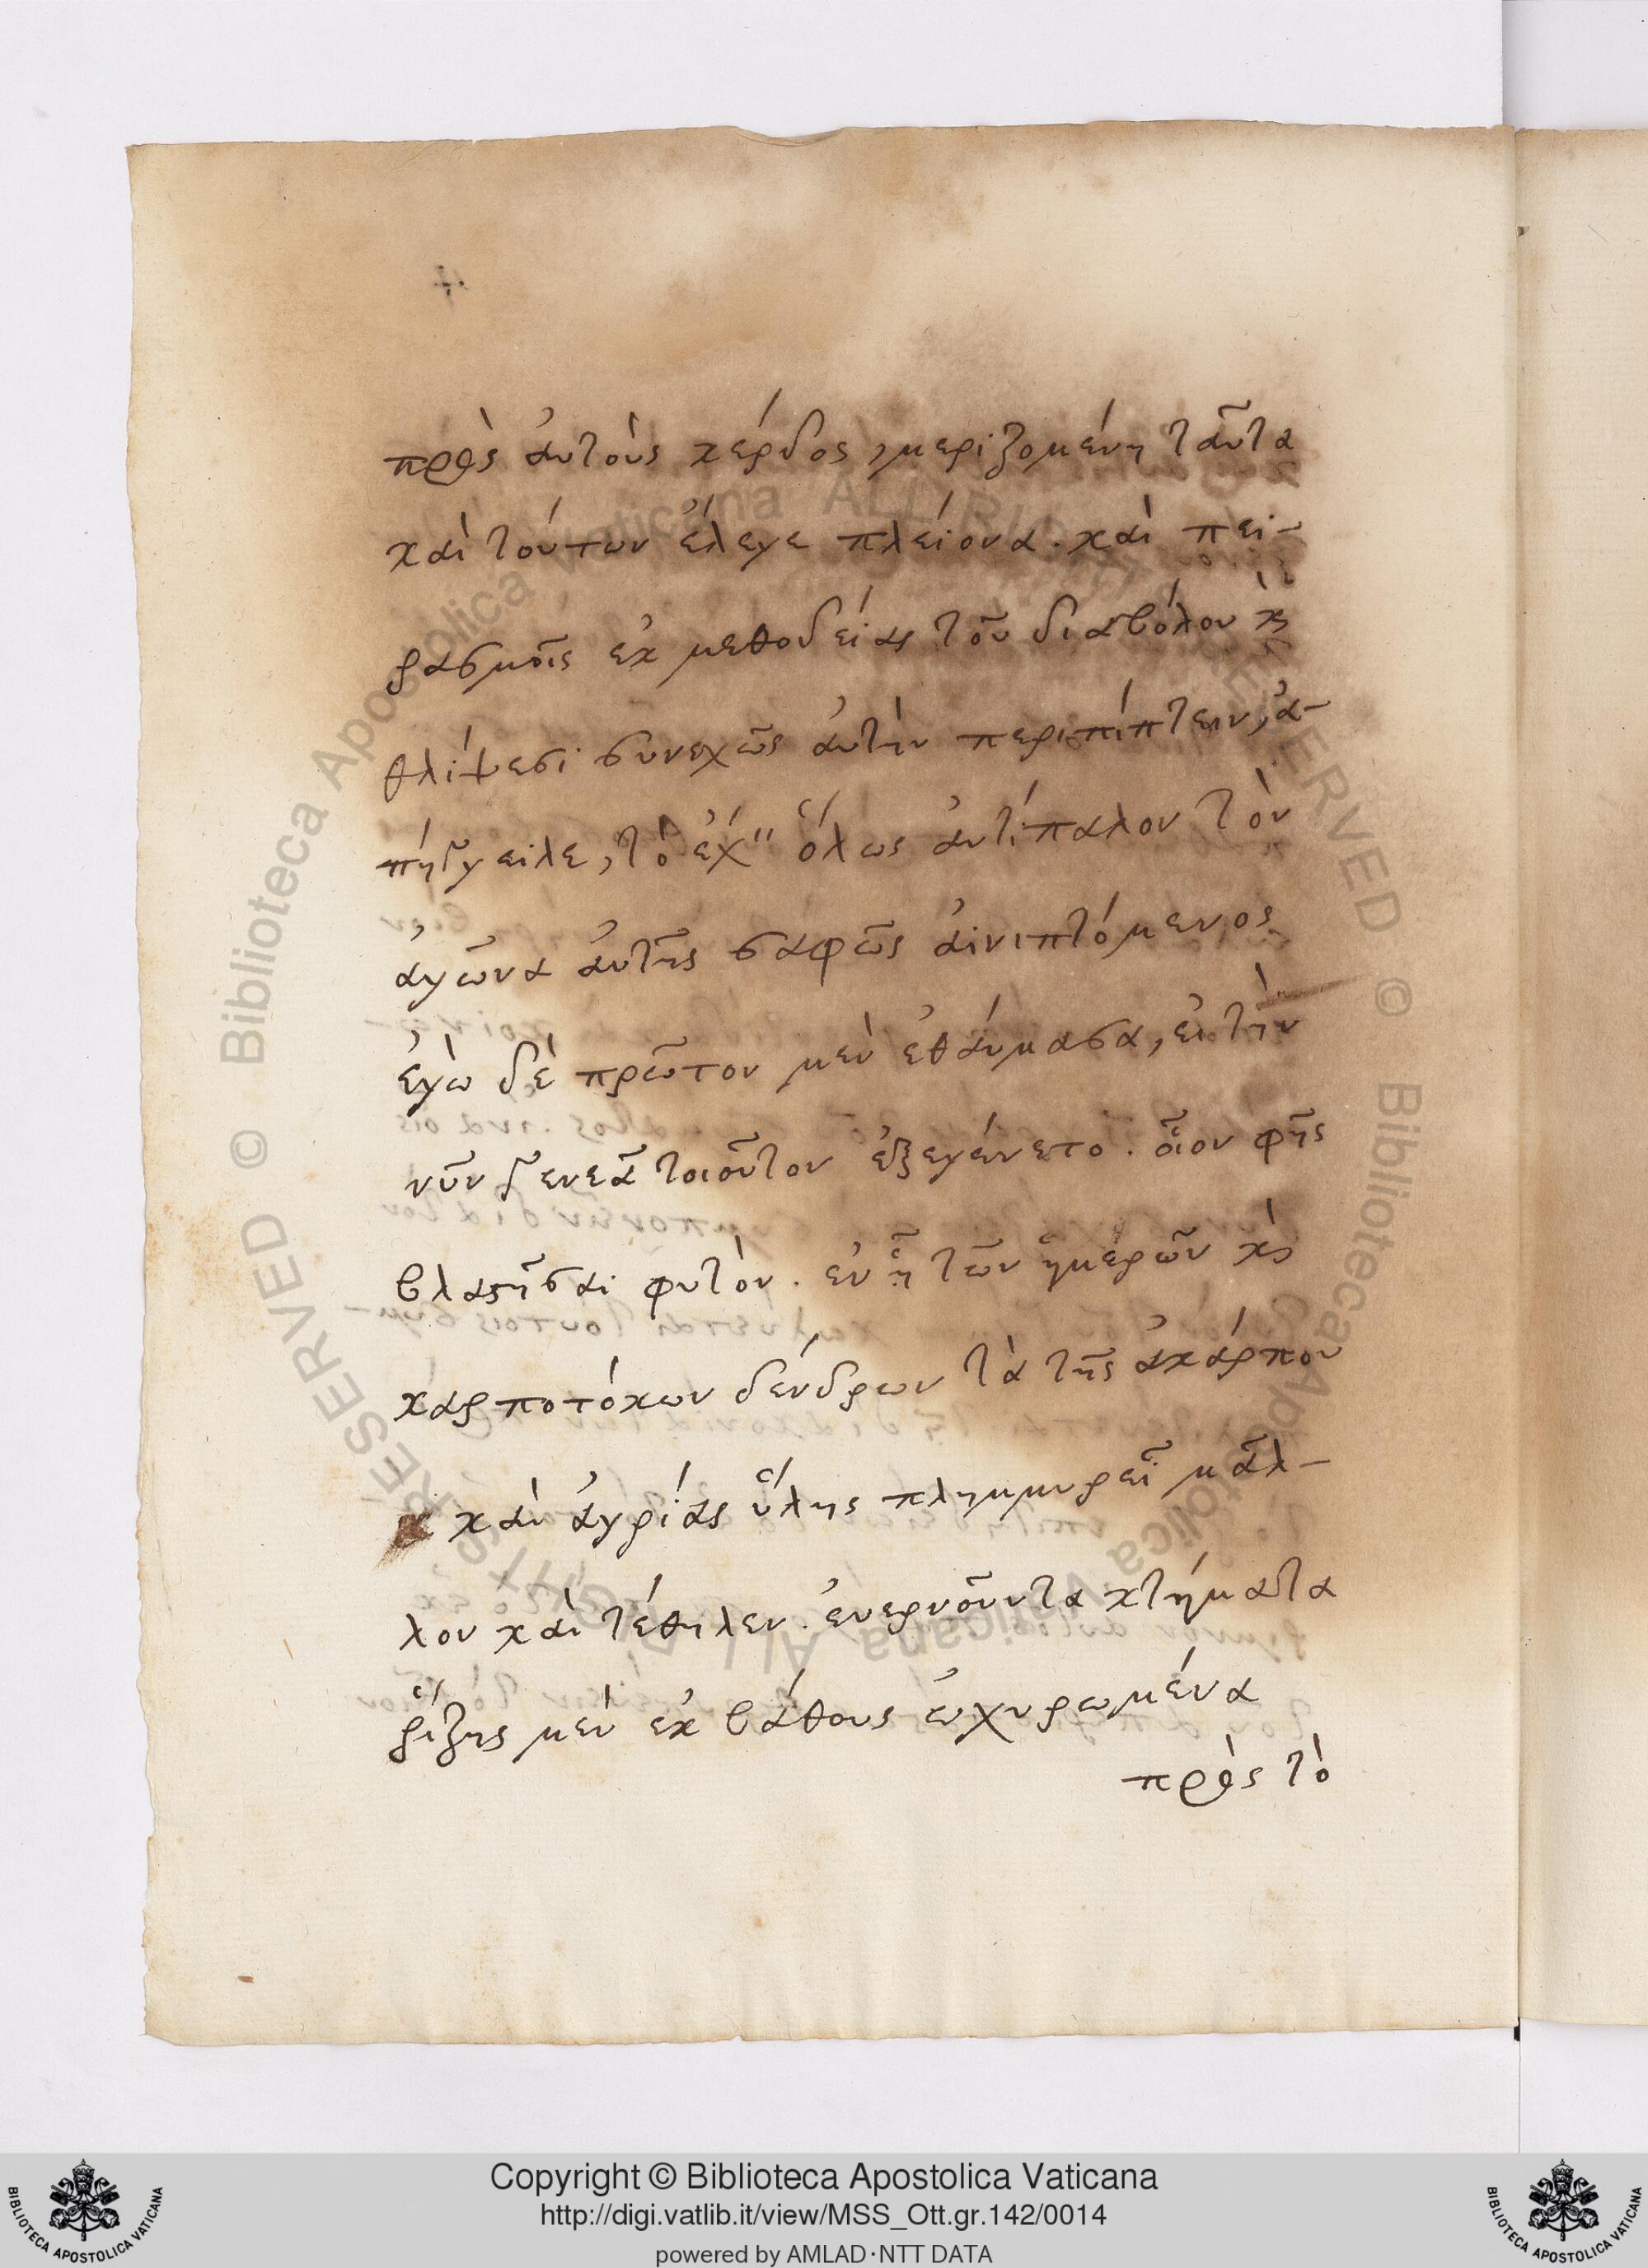 πρὸς ἀυτοὺς κέρδος, μεριζομένη ταῦτα
καὶ τούτων ἔλεγε πλείονα. καὶ πει-
ρασμοῖς ἐκ μεθοδείας τοῦ διαβόλου κ̀
θλίψεσι συνεχῶς ἀυτὴν περιπίπτειν, ἀ-
πήγγειλε, τὸ ὅλως ἀντίπαλον τὸν
ἀγῶνα ἀυτῆς σαφῶς ἀινιττόμενος
ἐγὼ δὲ πρῶτον μὲν ἐθάυμασα, ἐι τὴν
νῦν γενεᾶ τοιοῦτον ἐξεγένετο. οἷον φῂς
βλαστῆσαι φυτὸν. ἐν ᾗ τῶν ἡμερῶν κ̀
καρποτόκων δένδρων τὰ τῆς ἀκάρπου
καὶ ἀγρίας ὕλης πλημμυρεῖ μᾶλ-
λον καὶ τέθηλεν. κτήματα
ῥίζης μὲν ἐκ βάθους ὠχυρωμένα
πρὸς τὸ
Copyright © Biblioteca Apostolica Vaticana
http://digi.vatlib.it/view/MSS_Ott.gr.142/0014
powered by AMLAD·NTT DATA